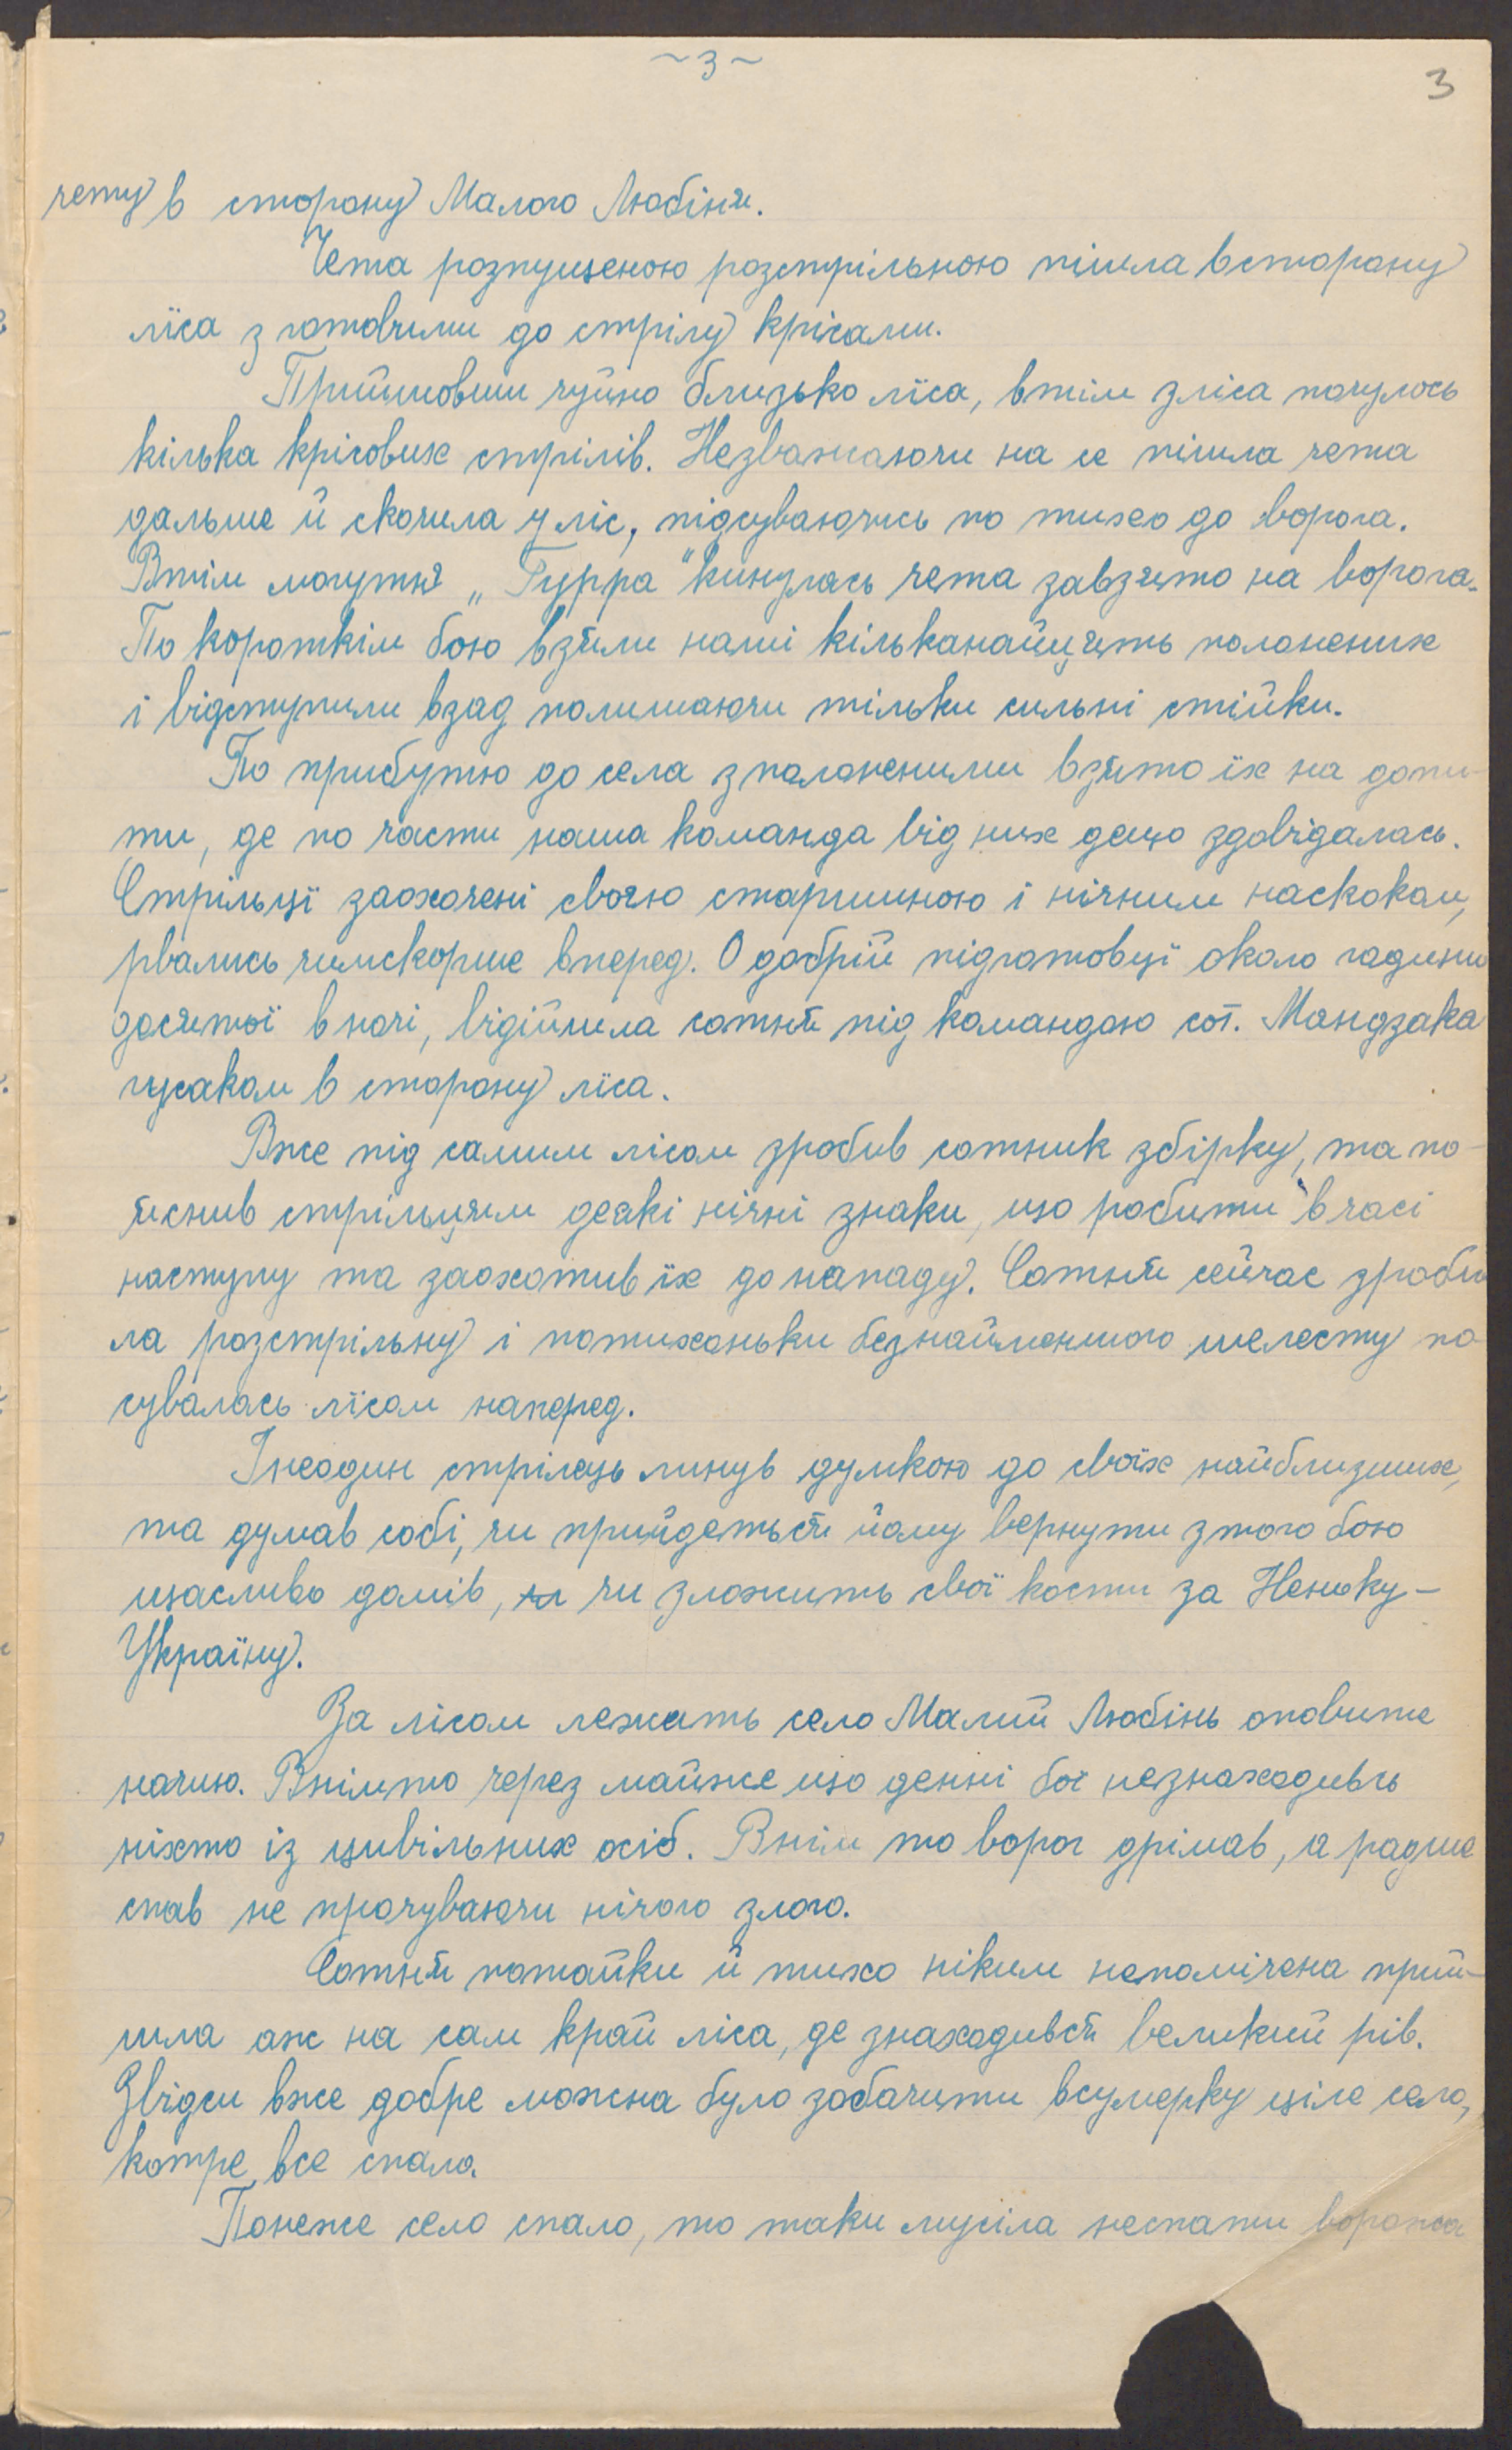 ~ 3 ~
3
чету в сторону Малого Любіня.
Чета розпущеною розстрільною пішла в сторону
ліса з готовими до стрілу крісами.
Прийшовши чуйно близько ліса, втім з ліса почулось
кілька крісових стрілів. Незважаючи на се пішла чета
дальше й скочила у ліс, підсуваючись по тихо до ворога.
Втім могутнє „Гурра" кинулась чета завзято на ворога.
По короткім бою взяли наші кільканайцять полонених
і відступили взад полишаючи тільки сильні стійки.
По прибутю до села з полоненими взято їх на допи-
ти, де по части наша команда від них дещо здовідалась.
Стрільці заохочені своєю старшиною і нічним наскоком,
рвались чимскорше вперед. О добрій підготовці около години
десятої в ночі, відійшла сотня під командою сот. Мандзака
гусаком в сторону ліса.
Вже під самим лісом зробив сотник збірку, та по-
яснив стрільцям деякі нічні знаки, що робити в часі
наступу та заохотив їх до нападу. Сотня сейчас зроби
ла розстрільну і потихоньки безнайменшого шелесту по
сувалась лісом наперед.
Інеодин стрілець линув думкою до своїх найблизших,
та думав собі, чи прийдеться йому вернути з того бою
щасливо домів, чи зложить свої кости за Неньку-
Україну.
За лісом лежить село Малий Любінь оповите
ночию. Внімто через майже що денні бої незнаходивсь
ніхто із цивільних осіб. Внім то ворог дрімав, а радше
спав не прочуваючи нічого злого.
Сотня потайки й тихо ніким непомічена прий-
шла аж на сам край ліса, де знаходився великий рів.
Звідси вже добре можна було забачити в сумерку ціле село,
котре все спало.
Понеже село спало, то таки мусіла неспати ворожа